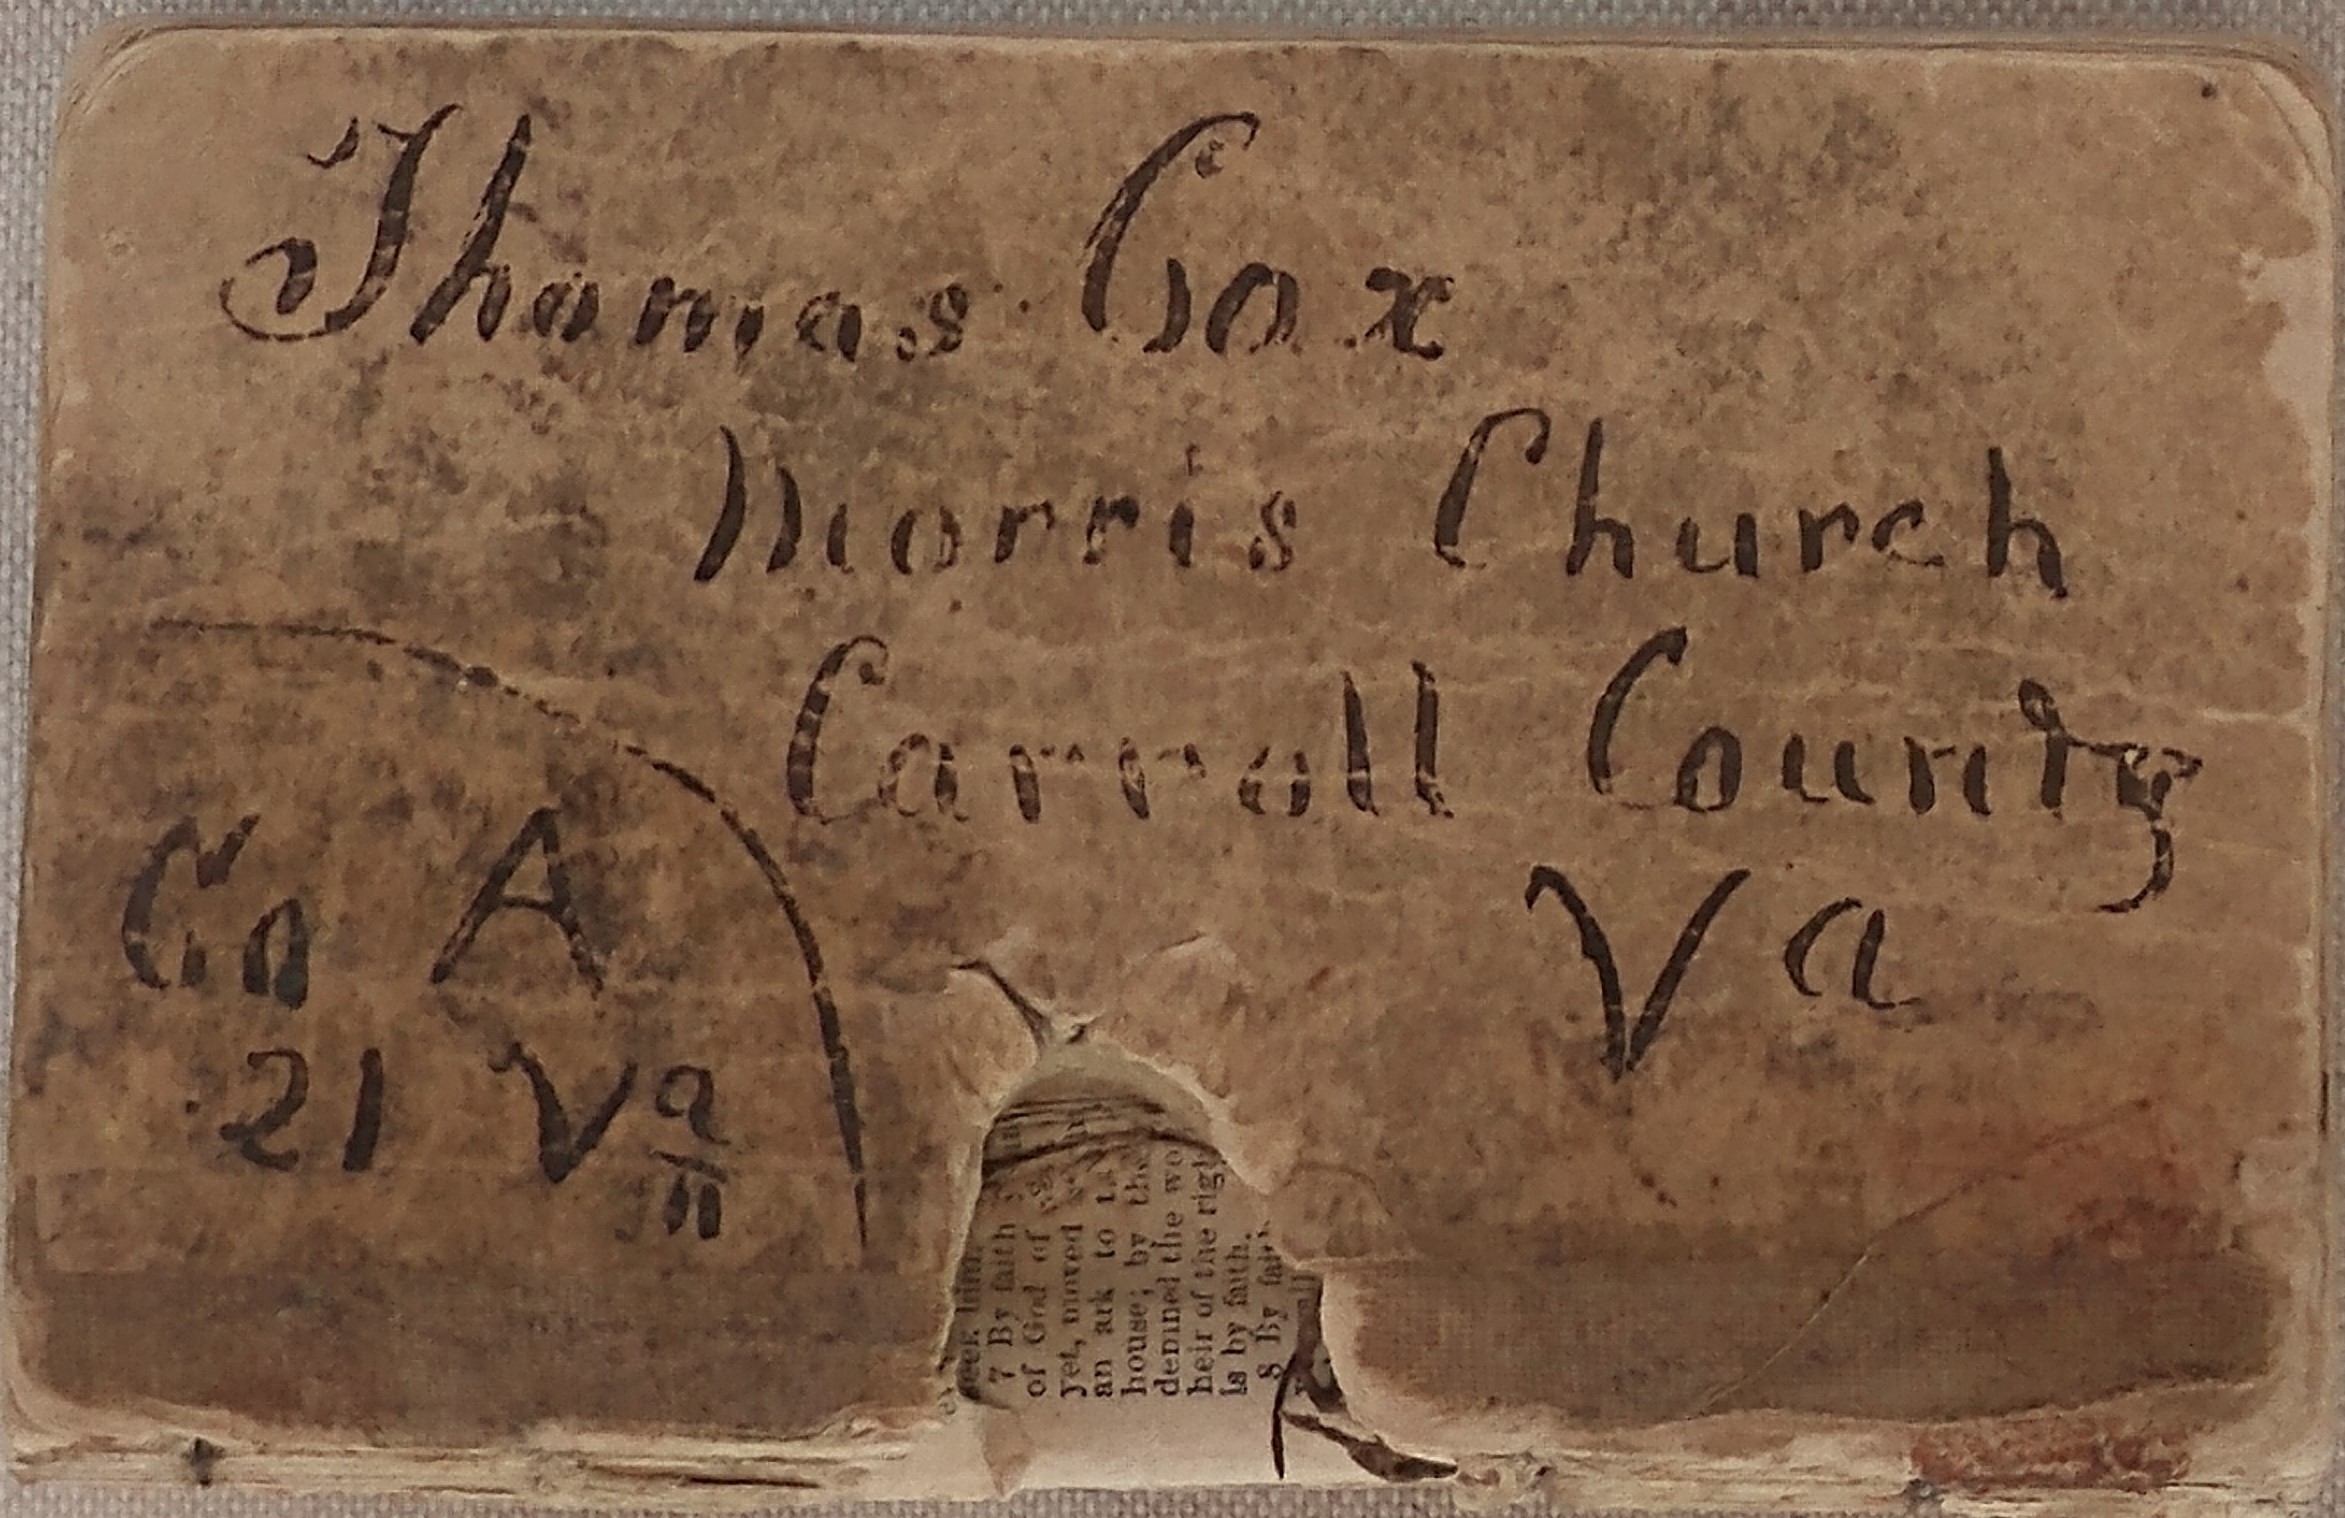 Thomas Cox
Morris Church
Carroll County
Va
Co A
21 Va
7 By faith
of God of
yet, moved
an ark to
house; by the
demned the wo
heir of the rig
is by faith.
8 By fai